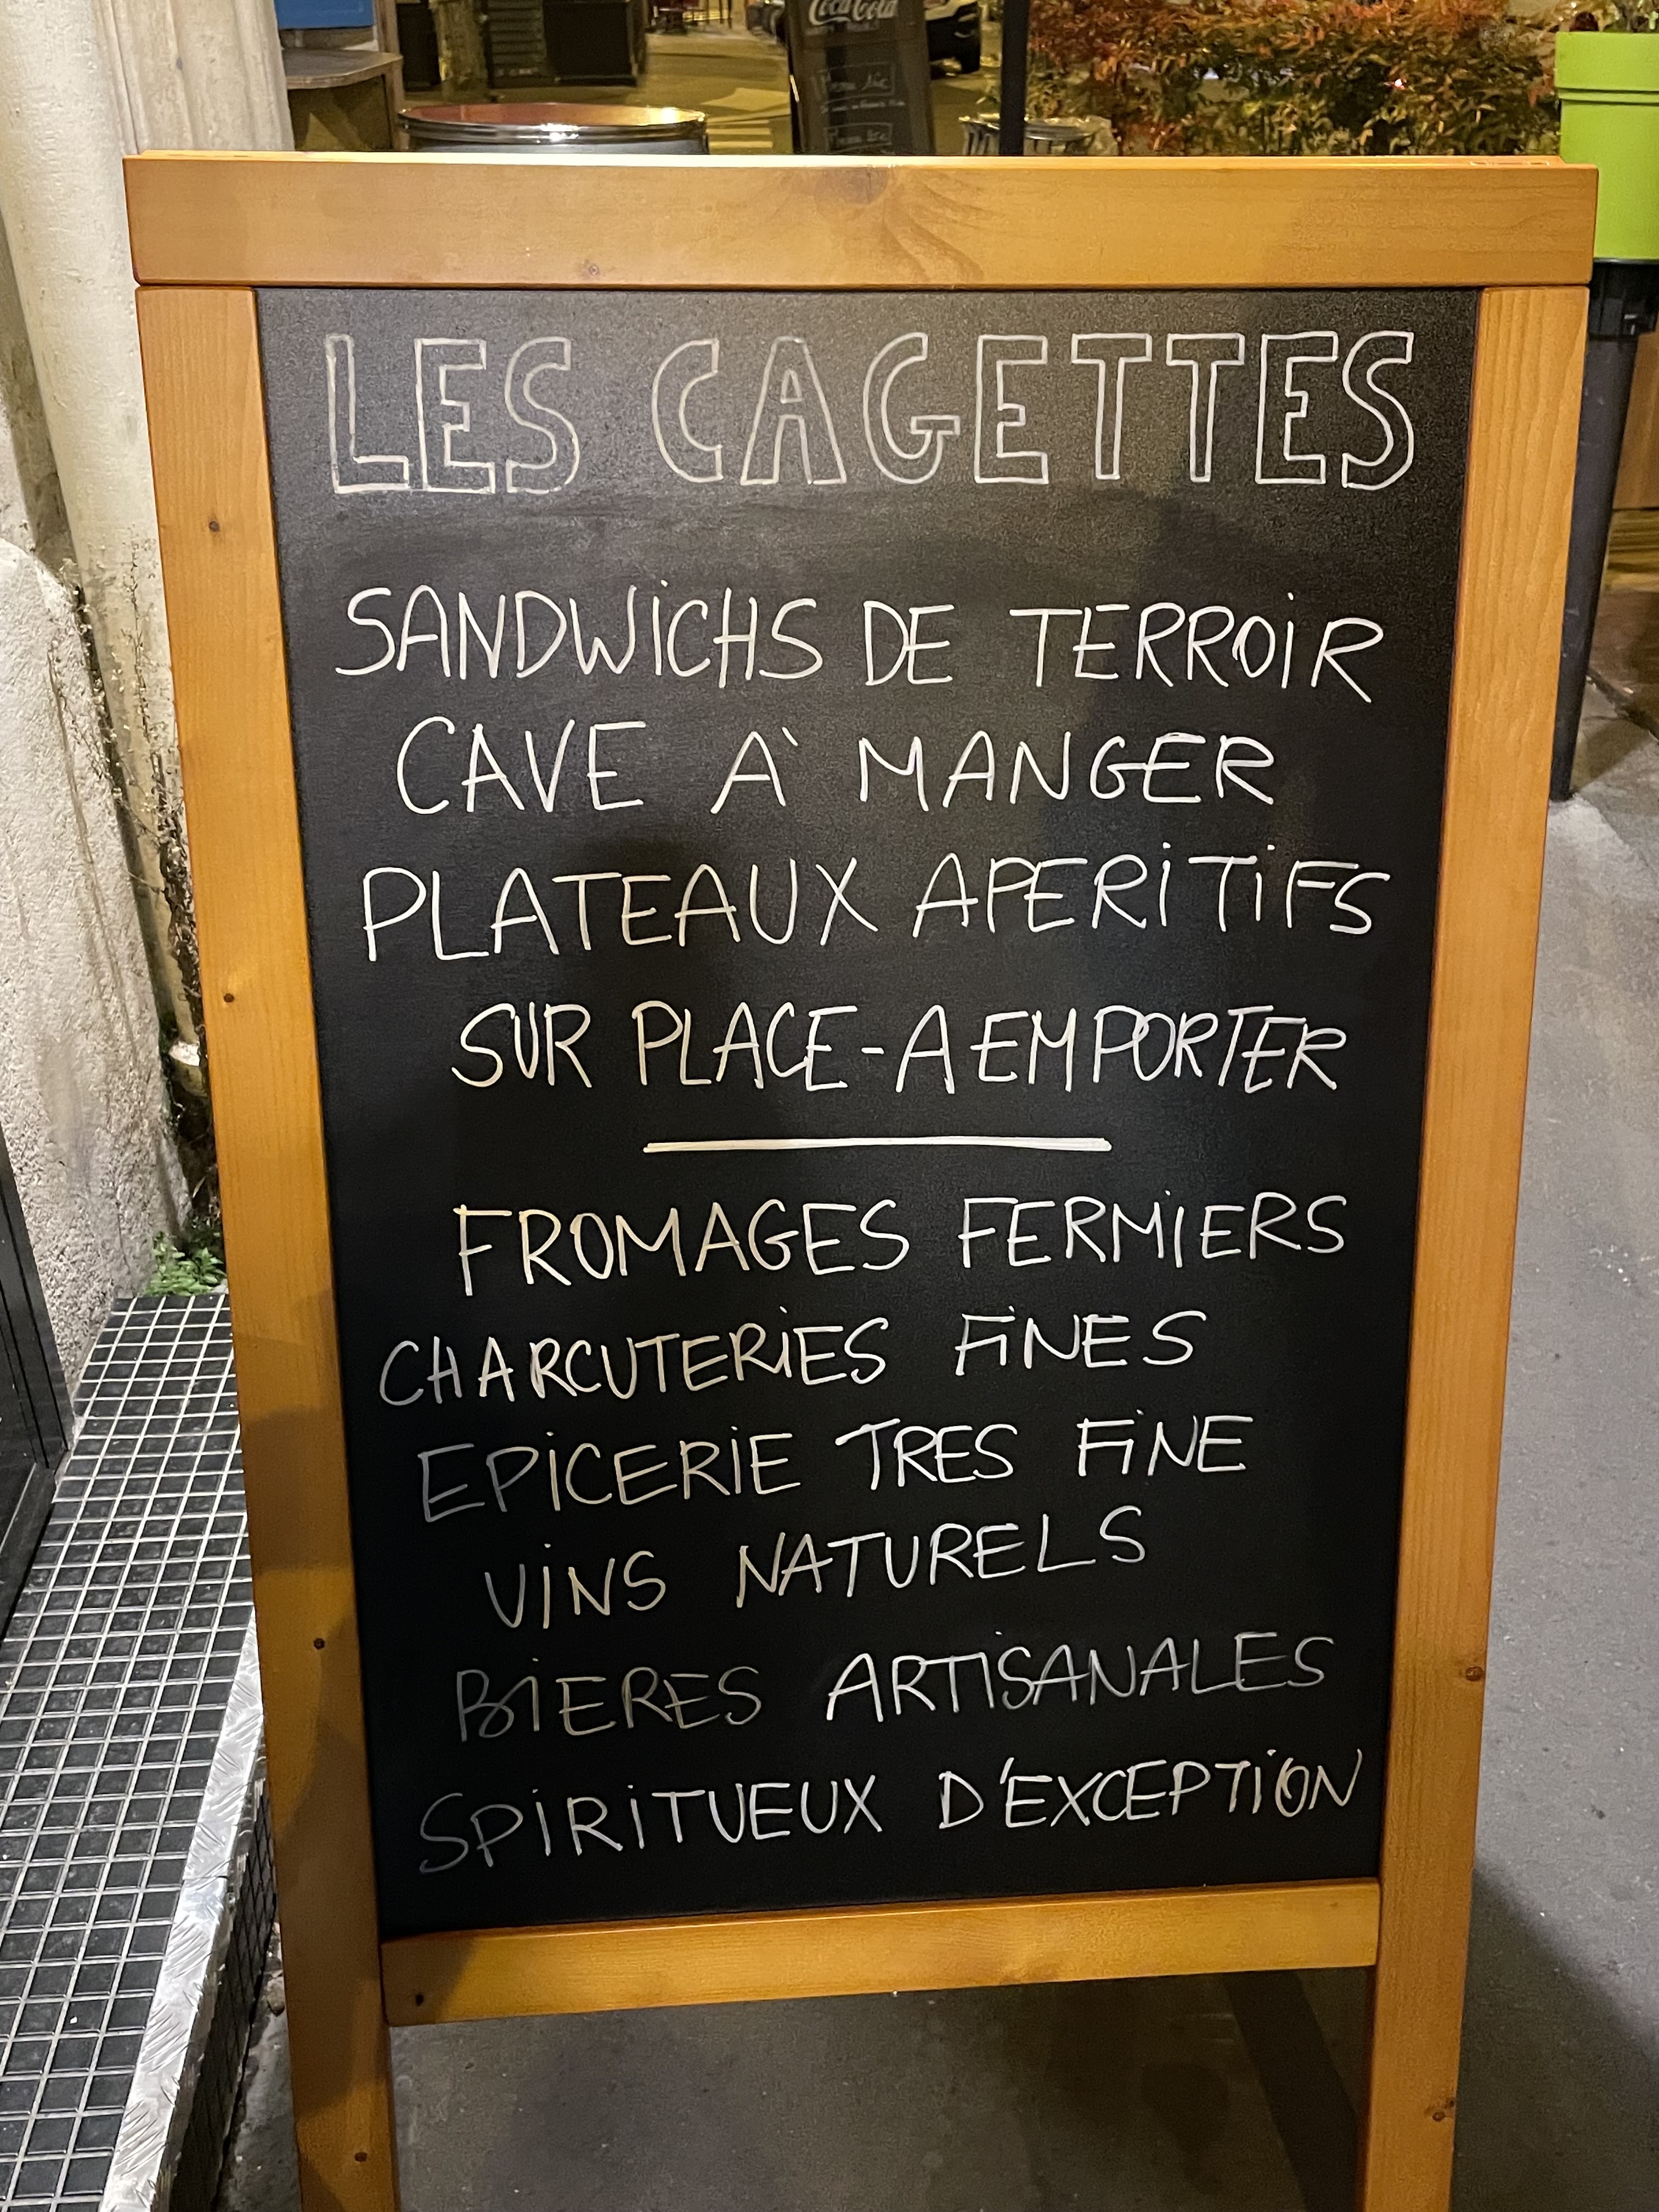 Coca-Cola
LES CAGETTES
SANDWICHS DE TERROIR
CAVE À MANGER
PLATEAUX APERITIFS
SUR PLACE - A EMPORTER
FROMAGES FERMIERS
CHARCUTERIES FINES
EPICERIE TRES FINE
VINS NATURELS
BIERES ARTISANALES
SPIRITUEUX D'EXCEPTION